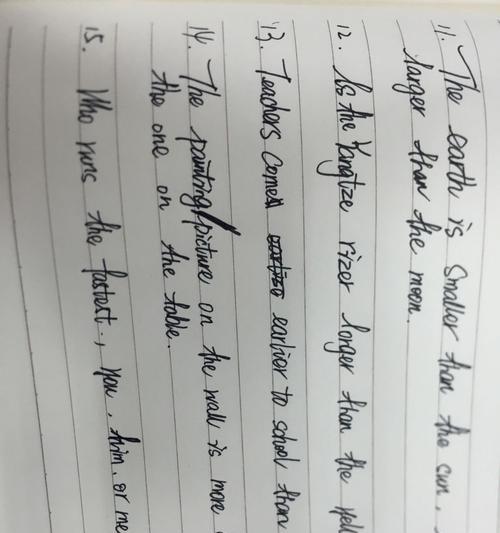 11. The earth is smaller than the cun,
larger than the moon.
12. Is the Yangtze rizer longer than the Yell
13. Teachers comes earlier to school than
14. The painting/picture on the wall is more
the one on the table.
15. Who runs the fastest., you, him, or me